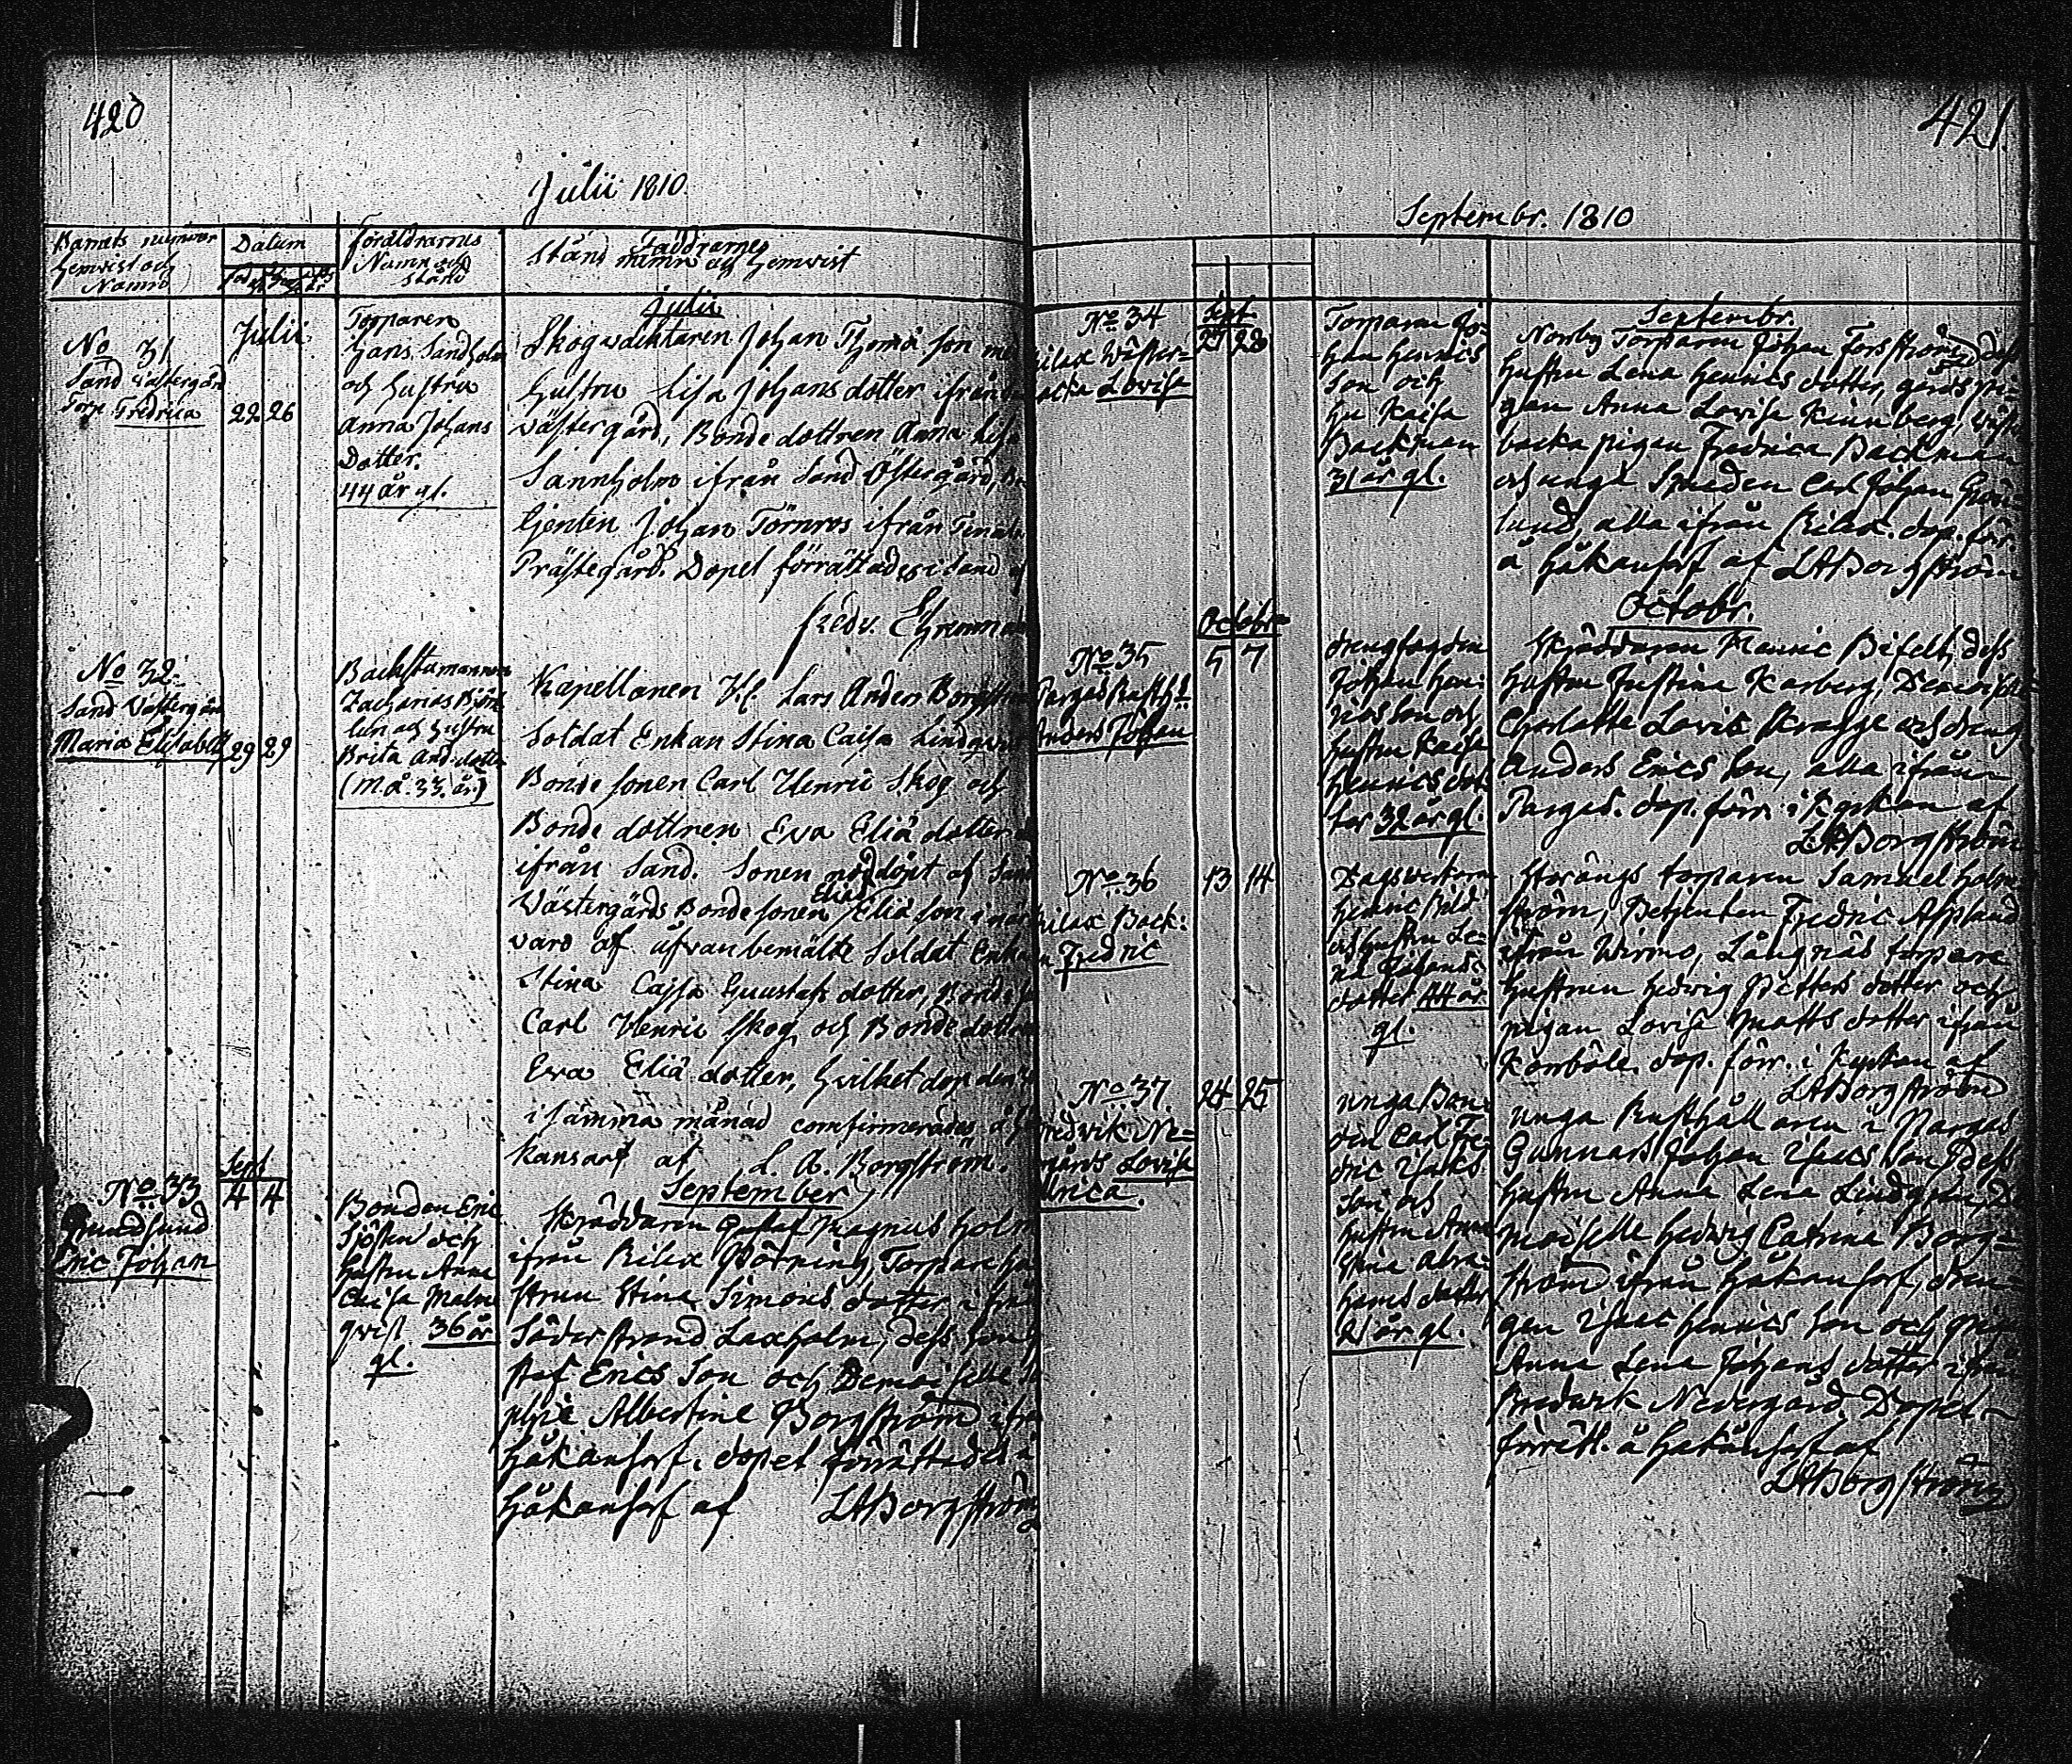 420
Julii 1810
Barnets nummer
hemvist och
Namn
Datum
Föräldrarnes
Namn och
stånd
Faddrarnes
Stånd namn och hemvist
No 31
Sand Västergård
Torp Fredrica
Julii
22 26
Torparen
Hans Sandholm
och hustru
Anna Johans
Dotter.
44 år gl.
Julii
Skogvacktaren Johan Thomæ son
hustru Lisa Johans dotter ifrån
Västergård, Bonde dottren Anna Lisa
Sannholm ifrån Sand Västergård,
tjenten Johan Törnros ifrån
Prästegård. Dopet förrättades i Sand af
Fredr. Ehrenman
No 32.
Sand Västergård
Maria Elisabeth
29 29
Backstumannen
Zacharias Björk
och hustru
Brita And. dotter
(M. å. 33. år)
Kapellanen V.C. Lars Anders Borgström
Soldat Enkan Stina Caisa Lindqvist
Bonde sonen Carl Henric Skog och
Bonde dottren Eva Eliæ dotter
ifrån Sand. Sonen nöddöpt af Sand
Västergårds Bonde sonen Elias Eliæ son i när
varo af åfvanbemälte Soldat Enkan
Stina Cajsa Gustafs dotter, Bonde
Carl Henric Skog, och Bonde dottren
Eva Eliæ dotter, hvilket dop den
i samma månad comfirmerades å Hå
kansarf af L. A. Borgström.
No 33
Grundsund
Eric Johan
Sept
4 4
Bonden Eric
Sjösten och
hustru Anna
Caisa Malm
qvist 36 år
gl.
September
Skräddaren Gustaf Magnus Holm
ifrån Rilax Torparehu
strun Stina Simons dotter ifrån
Söderstrand Laxholm, dess son
staf Erics Son och Demoiselle So
phie Albertine Borgström ifrån
Håkansarf. dopet förrättades i
Håkansarf af LABorgström
421.
Septembr. 1810
No 34
Rilax Wäster-
backa Lovisa
Sept
27 28
Torparen Jo-
han Henrics
Son och
hu Kaisa
Backman
31 år gl.
Septembr.
Norrby Torparen Johan Forsström, dess
hustru Lena Henrics dotter, gårds pi-
gan Anna Lovisa Kinnberg, Wäster
backa pigan Fredrica Backman
och unga Smeden Carl Johan Grön-
lund, alla ifrån Rilax. dop. förr.
å Håkansarf af LABorgström
No 35
Pargas Rusth:
Anders Johan
Octobr
5 7
drengfogden
Johan Hen-
rics son och
hustru Kaisa
Henrics dot
ter 32 år gl.
Octobr.
Skräddaren Henric Bifelt, dess
hustru Justina Karberg, Demoiselle
Charlotta Lovis Krogge och dreng
Anders Erics Son, alla ifrån
Pargas. dop. förr. i Kyrkan af
LABorgström
No 36
Rilax Back:
Fredric
13 14
Dagsverkaren
Henric Rild
och hustru Le-
na Johans
dotter 44 år
gl.
Storängs torparen Samuel Holm-
ström, Betjenten Fredric Aspland
ifrån Wirmo, Långnäs torpare
hustrun Hedwig Petters dotter och
pigan Lovisa Matts dotter ifrån
Korsböle. dop. förr. i Kyrkan af
LABorgström
No 37.
Bredwik Ne-
dergårds Lovisa
Ulrica.
24 25
unga Bon-
den Carl Fre-
dric Isaks
Son och
hustru Anna
Stina Abra-
hams dotter
21 år gl.
unga Rusthållaren i Pargas
Gunnars Johan Isacs Son, dess
hustru Anna Lena Lindgren, De
moiselle Hedwig Catrina Borg-
ström ifrån Håkansarf, dren-
gen Isac Henrics Son och pigan
Anna Lena Johans dotter ifrån
Bredwik Nedergård. Dopet
förrätt. å Håkansarf af
LABorgström